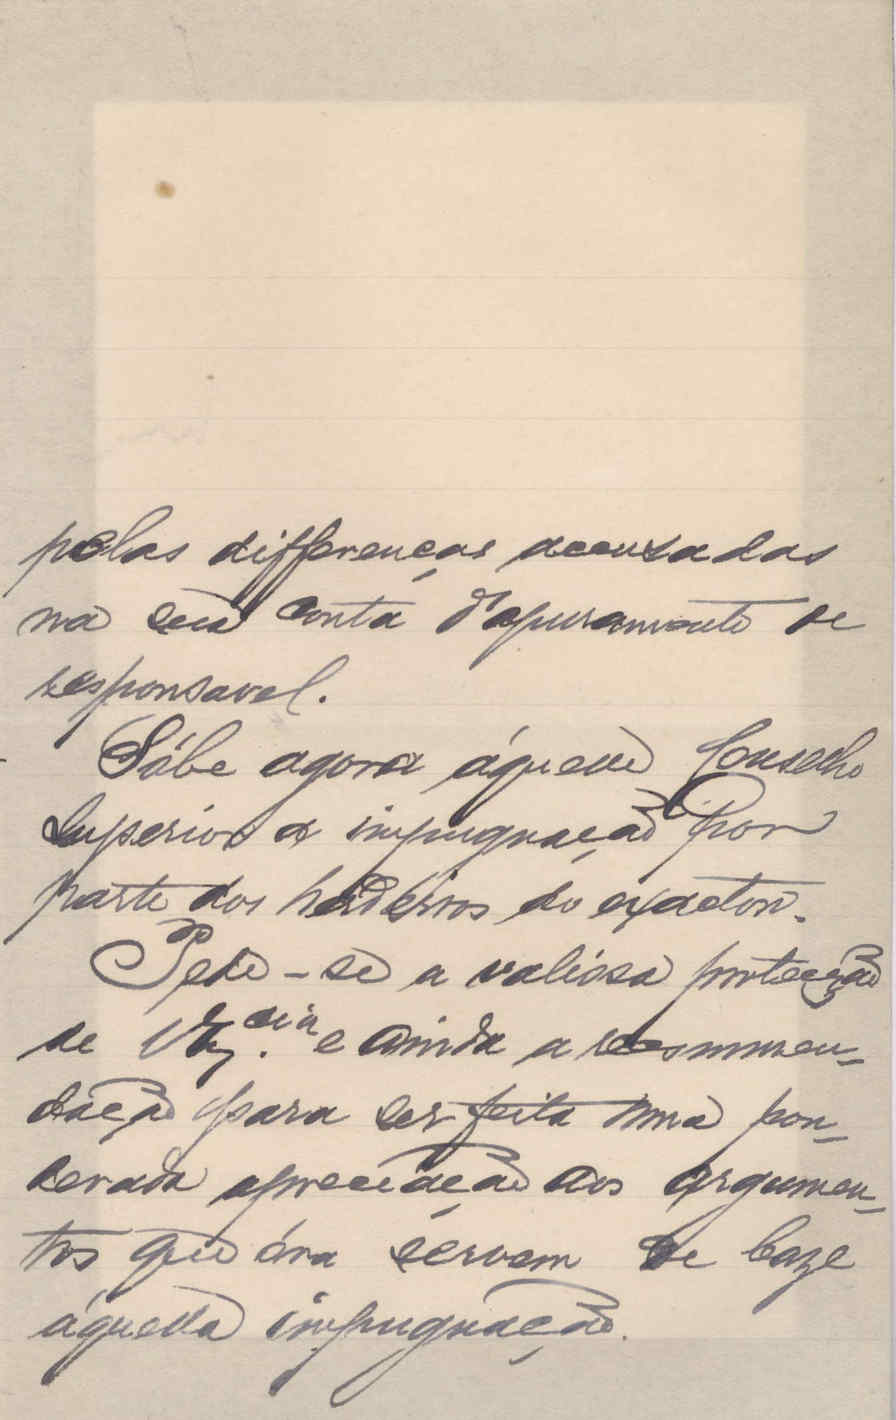 pelas differenças accuzadas
na sua conta d'apuramento de
responsavel.
Sóbe agora áquelle Conselho
Superior a impugnação por
parte dos herdeiros do exactor.
Pede-se a valiosa protecção
de V. Ex.cia e ainda a recommen-
dação para ser feita uma pon-
derada apreciação aos argumen-
tos que óra servem de baze
áquella impugnação.